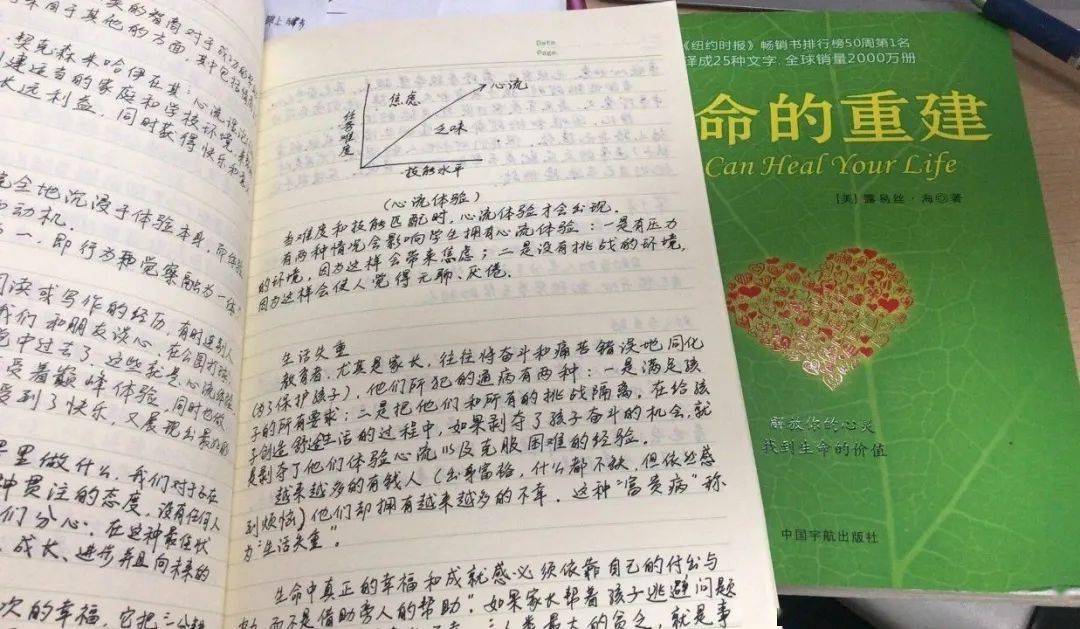 契克森米哈伊在其:心流理论
建适当的家庭和学校环境,
长远利益,同时获得快乐和
完全地沉浸于体验本身,
动机.
一,即行为和觉察融为一体"
阅读或写作的经历,有时
我们和朋友谈心,在公园打球,
中过去了.这些就是心流体验
受着巅峰体验,同时也做
受到了快乐,又展现出最
里做什么,我们对于
种贯注的态度,没有任何人
们分心.在这种最佳状
成长、进步并且向未来的
次的幸福,它把
Date
Page
焦虑
心流
任务难度
乏味
技能水平
(心流体验)
当难度和技能匹配时,心流体验才会出现.
有两种情况会影响学生拥有心流体验:一是有压力
的环境,因为这样会带来焦虑;二是没有挑战的环境,
因为这样会使人觉得无聊、厌倦.
生活失重
教育者,尤其是家长,往往将奋斗和痛苦错误地同化
(为了保护孩子),他们所犯的通病有两种:一是满足孩
子的所有要求;二是把他们和所有的挑战隔离.在给孩
子创造舒适生活的过程中,如果剥夺了孩子奋斗的机会,就
是剥夺了他们体验心流以及克服困难的经验.
越来越多的有钱人(出身富裕,什么都不缺,但依然感
到烦恼)他们却拥有越来越多的不幸.这种"富贵病"称
为"生活失重".
生命中真正的幸福和成就感必须依靠自己的付出与
而不是借助旁人的帮助".如果家长帮着孩子逃避问题
人类最大的负乏,就是事
《纽约时报》畅销书排行榜50周第1名
译成25种文字,全球销量2000万册
命的重建
Can Heal Your Life
[美]露易丝·海◎著
解放你的心灵
找到生命的价值
中国宇航出版社